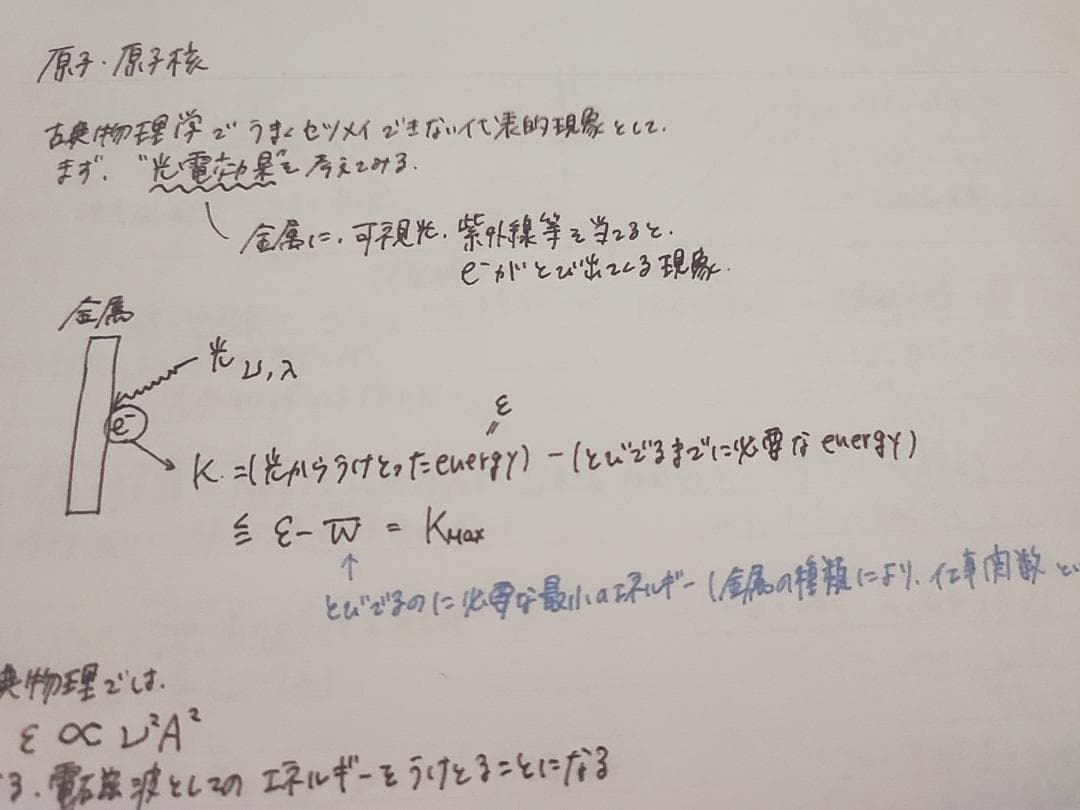 原子・原子核
古典物理学でうまくセツメイできない代表的現象として、
まず、"光電効果"を考えてみる.
金属に、可視光、紫外線等を当てると、
e⁻がとび出てくる現象.
金属
光 ν, λ
e⁻
ε
〃
K = (光からうけとったenergy) − (とびでるまでに必要なenergy)
≦ ε − W = KMax
↑
とびでるのに必要な最小のエネルギー (金属の種類により、仕事関数と
典物理では、
ε ∝ ν²A²
る、電磁波としてのエネルギーをうけとることになる